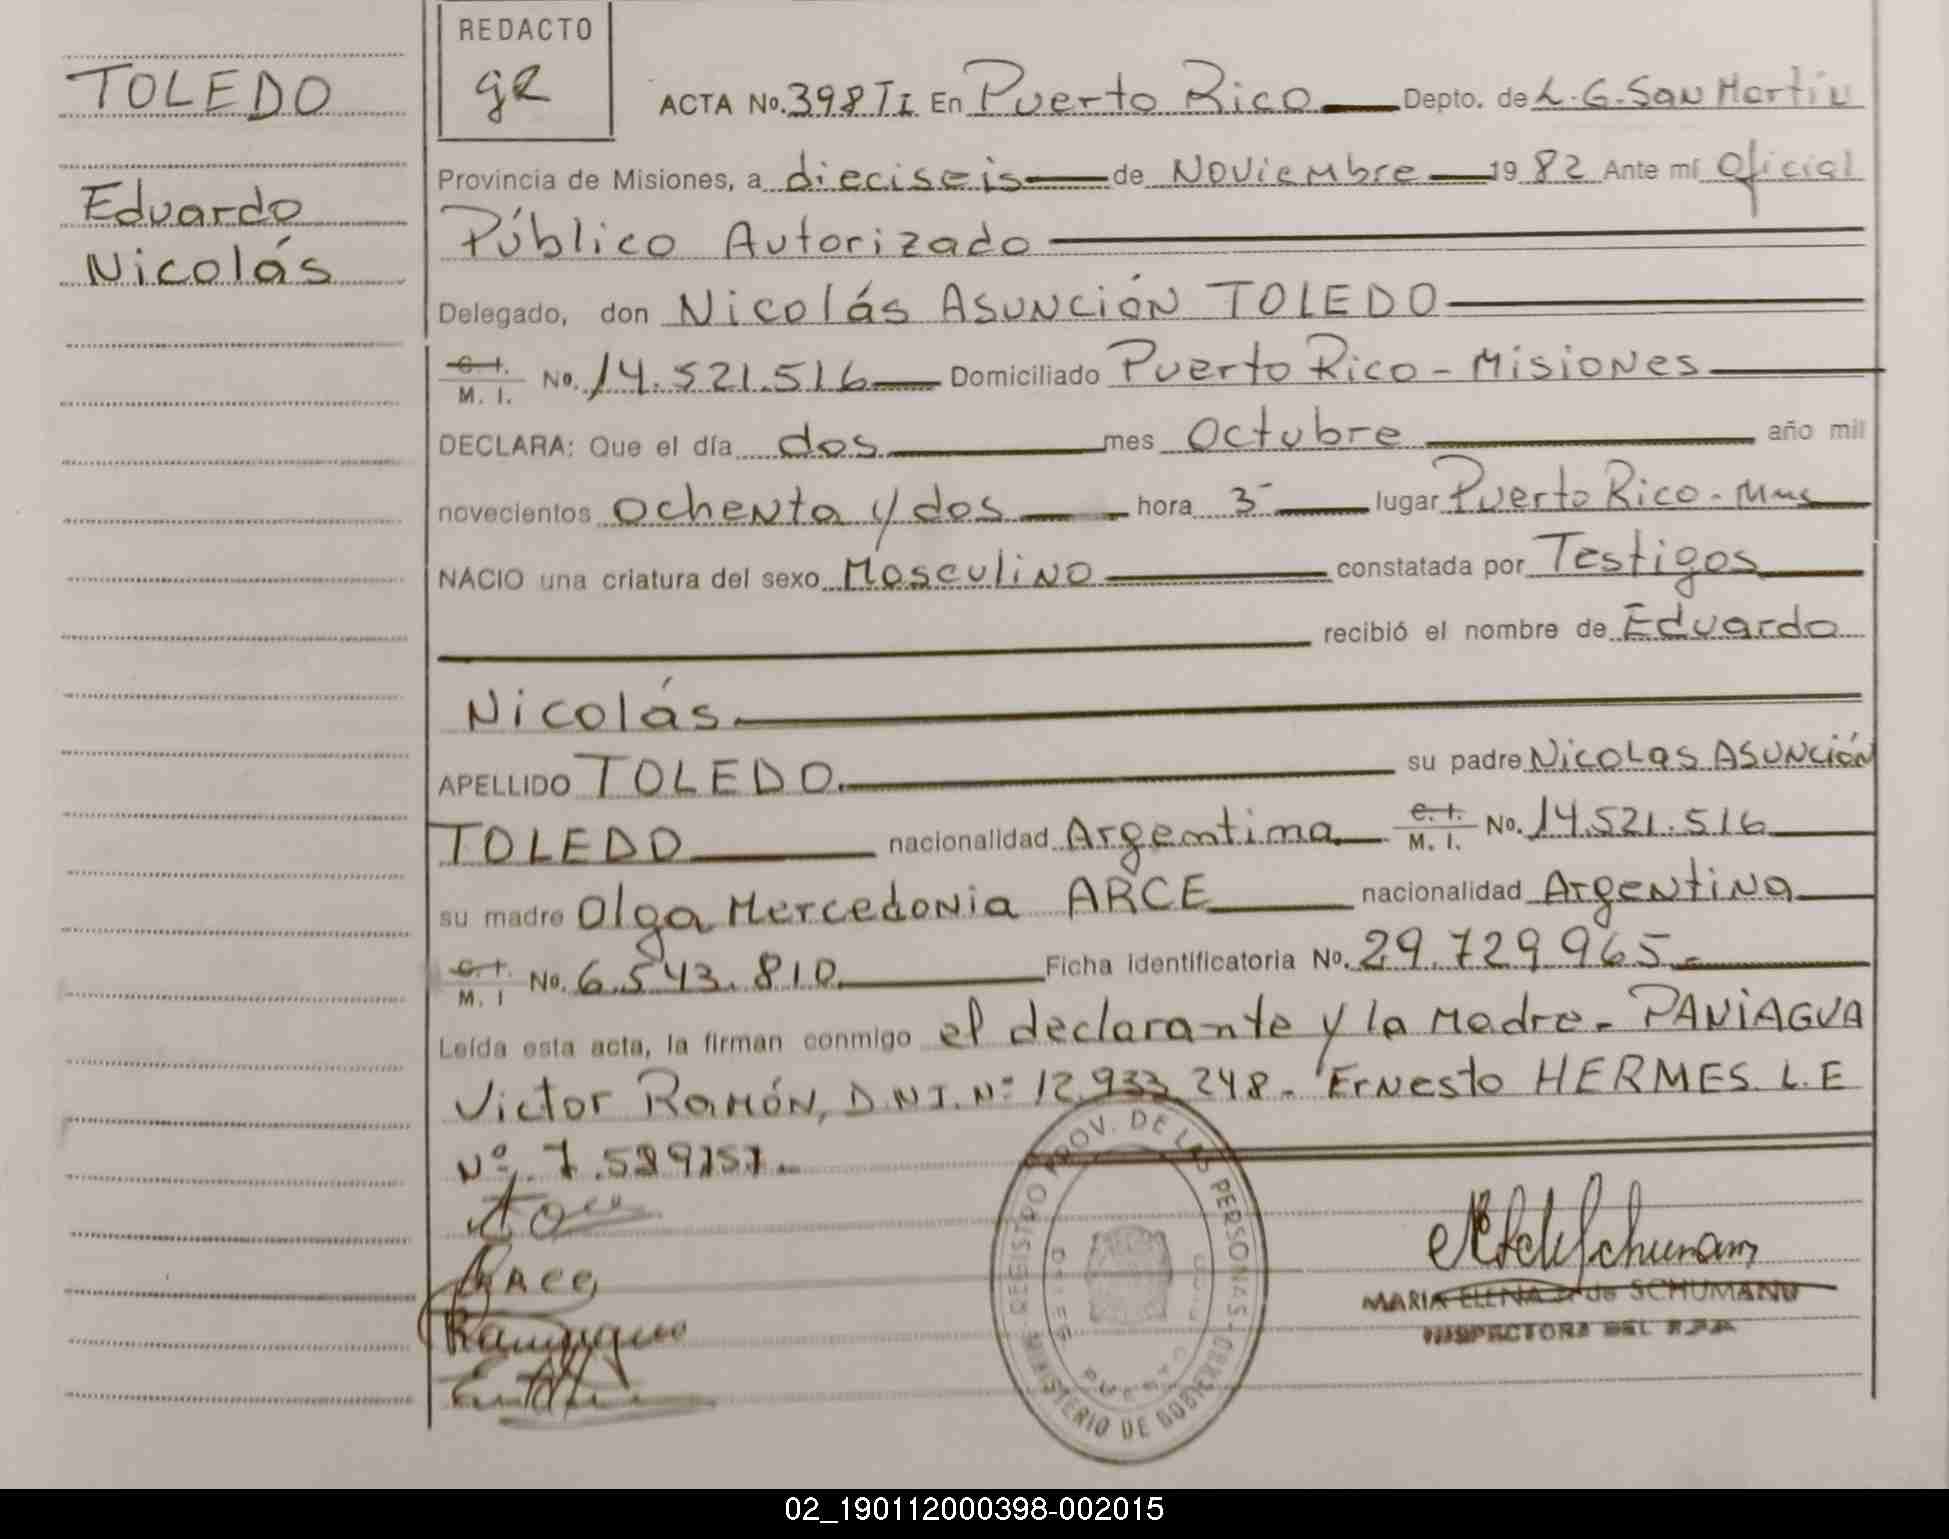 TOLEDO
Eduardo
Nicolás
REDACTO
gr
ACTA No. 398 TI En Puerto Rico Depto. de L.G. San Martin
Provincia de Misiones, a dieciseis de Noviembre 19 82 Ante mí Oficial
Público Autorizado
Delegado, don Nicolás Asunción TOLEDO
C.I. M. I. No. 14.521.516 Domiciliado Puerto Rico - Misiones
DECLARA: Que el día dos mes Octubre año mil
novecientos ochenta y dos hora 3 lugar Puerto Rico - Mnes
NACIO una criatura del sexo Masculino constatada por Testigos
recibió el nombre de Eduardo
Nicolás
APELLIDO TOLEDO. su padre Nicolas Asunción
TOLEDO nacionalidad Argentina C.I. M. I. No. 14.521.516
su madre Olga Mercedonia ARCE nacionalidad Argentina
C.I. M. I No. 6.543.810 Ficha identificatoria No. 29.729965.-
Leída esta acta, la firman conmigo el declarante y la Madre.- PANIAGUA
Victor Ramón, D.N.I. Nº 12.933.248.- Ernesto HERMES L.E
Nº 7.
REGISTRO PROV. DE LAS PERSONAS - MINISTERIO DE GOBIERNO
MARIA ELENA de SCHUMANN
INSPECTORA DEL R.P.P.
02_190112000398-002015